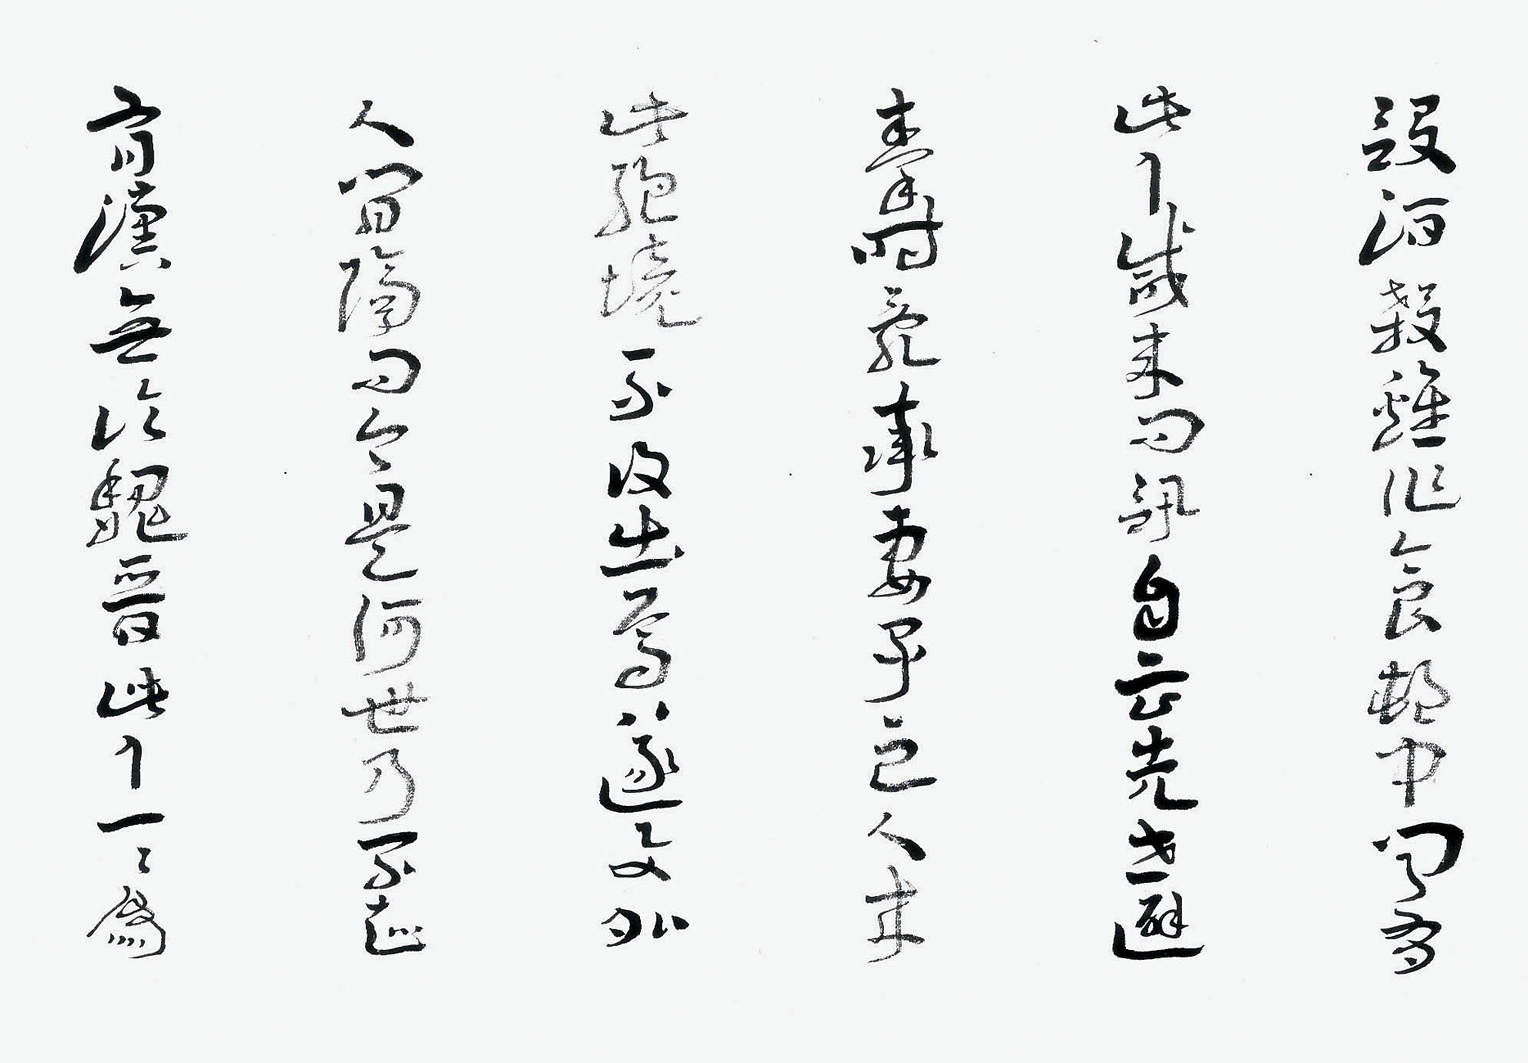 設酒殺雞作食邨中聞有
此人咸來問訊自云先世避
秦時亂率妻子邑人來
此絕境不復出焉遂與外
人間隔問今是何世乃不知
有漢無論魏晉此人一〻為